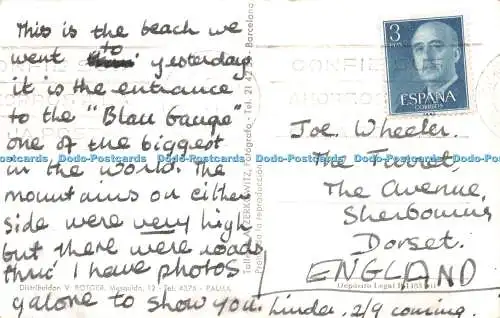 This is the beach we
went to yesterday
it is the entrance
to the "Blau Gauge"
one of the biggest
in the world. The
mountains on either
side were very high
but there were roads
thru' I have photos
galore to show you. Linder. 2/9 coming.
Joe Wheeler.
The Turret,
The Avenue,
Sherbourne
Dorset.
ENGLAND
3
PTAS
ESPAÑA
CORREOS
Dodo-Postcards Dodo-Postcards Dodo-Postcards Dodo-Postcards Dodo-Postcards
Distribuidor V. ROTGER. 12 - Tel. 4376 - PALMA
Fotógrafo - Tel. 21 42 - Barcelona
Depósito Legal